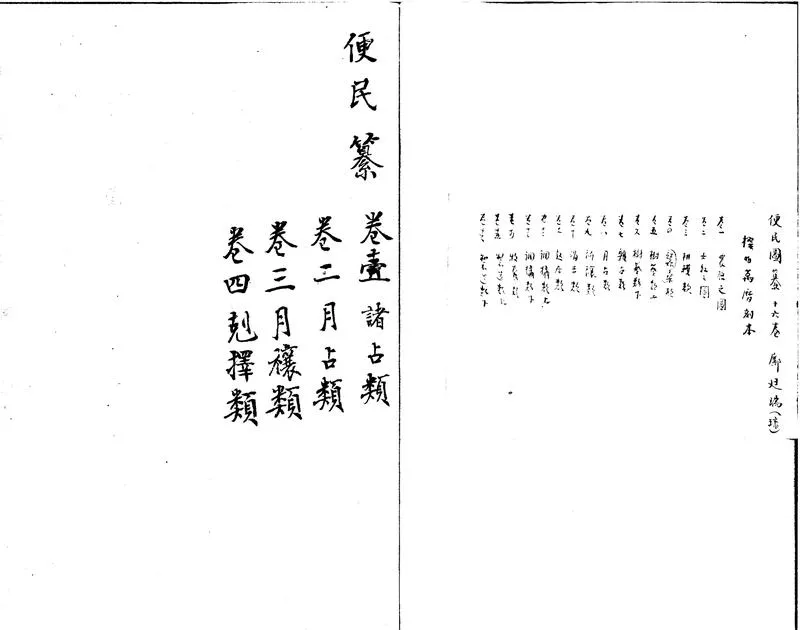 便民圖纂 十六卷 鄺廷瑞(璠)
撰 明萬曆刻本
卷一 農務之圖
卷二 女紅之圖
卷三 耕穫類
卷五 樹藝類上
卷六 樹藝類下
卷七 雜占類
卷八 月占類
卷九 祈禳類
卷十 涓吉類
起居類
調攝類上
調攝類下
牧養類
製造類上
製造類下
便民纂
卷壹諸占類
卷二月占類
卷三月禳類
卷四尅擇類